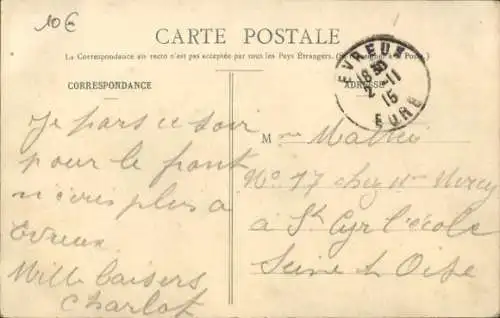 10€
CARTE POSTALE
La Correspondance au recto n'est pas acceptée par tous les Pays Étrangers. (Se à la Poste.)
CORRESPONDANCE
ADRESSE
EVREUX
18 30
2 - 11
15
EURE
Je pars ce soir
pour le front
n'écris plus à
Evreux
Mille baisers
Charlot
Mme Mathieu
No 17 chez Mr
à St Cyr l'école
Seine et Oise